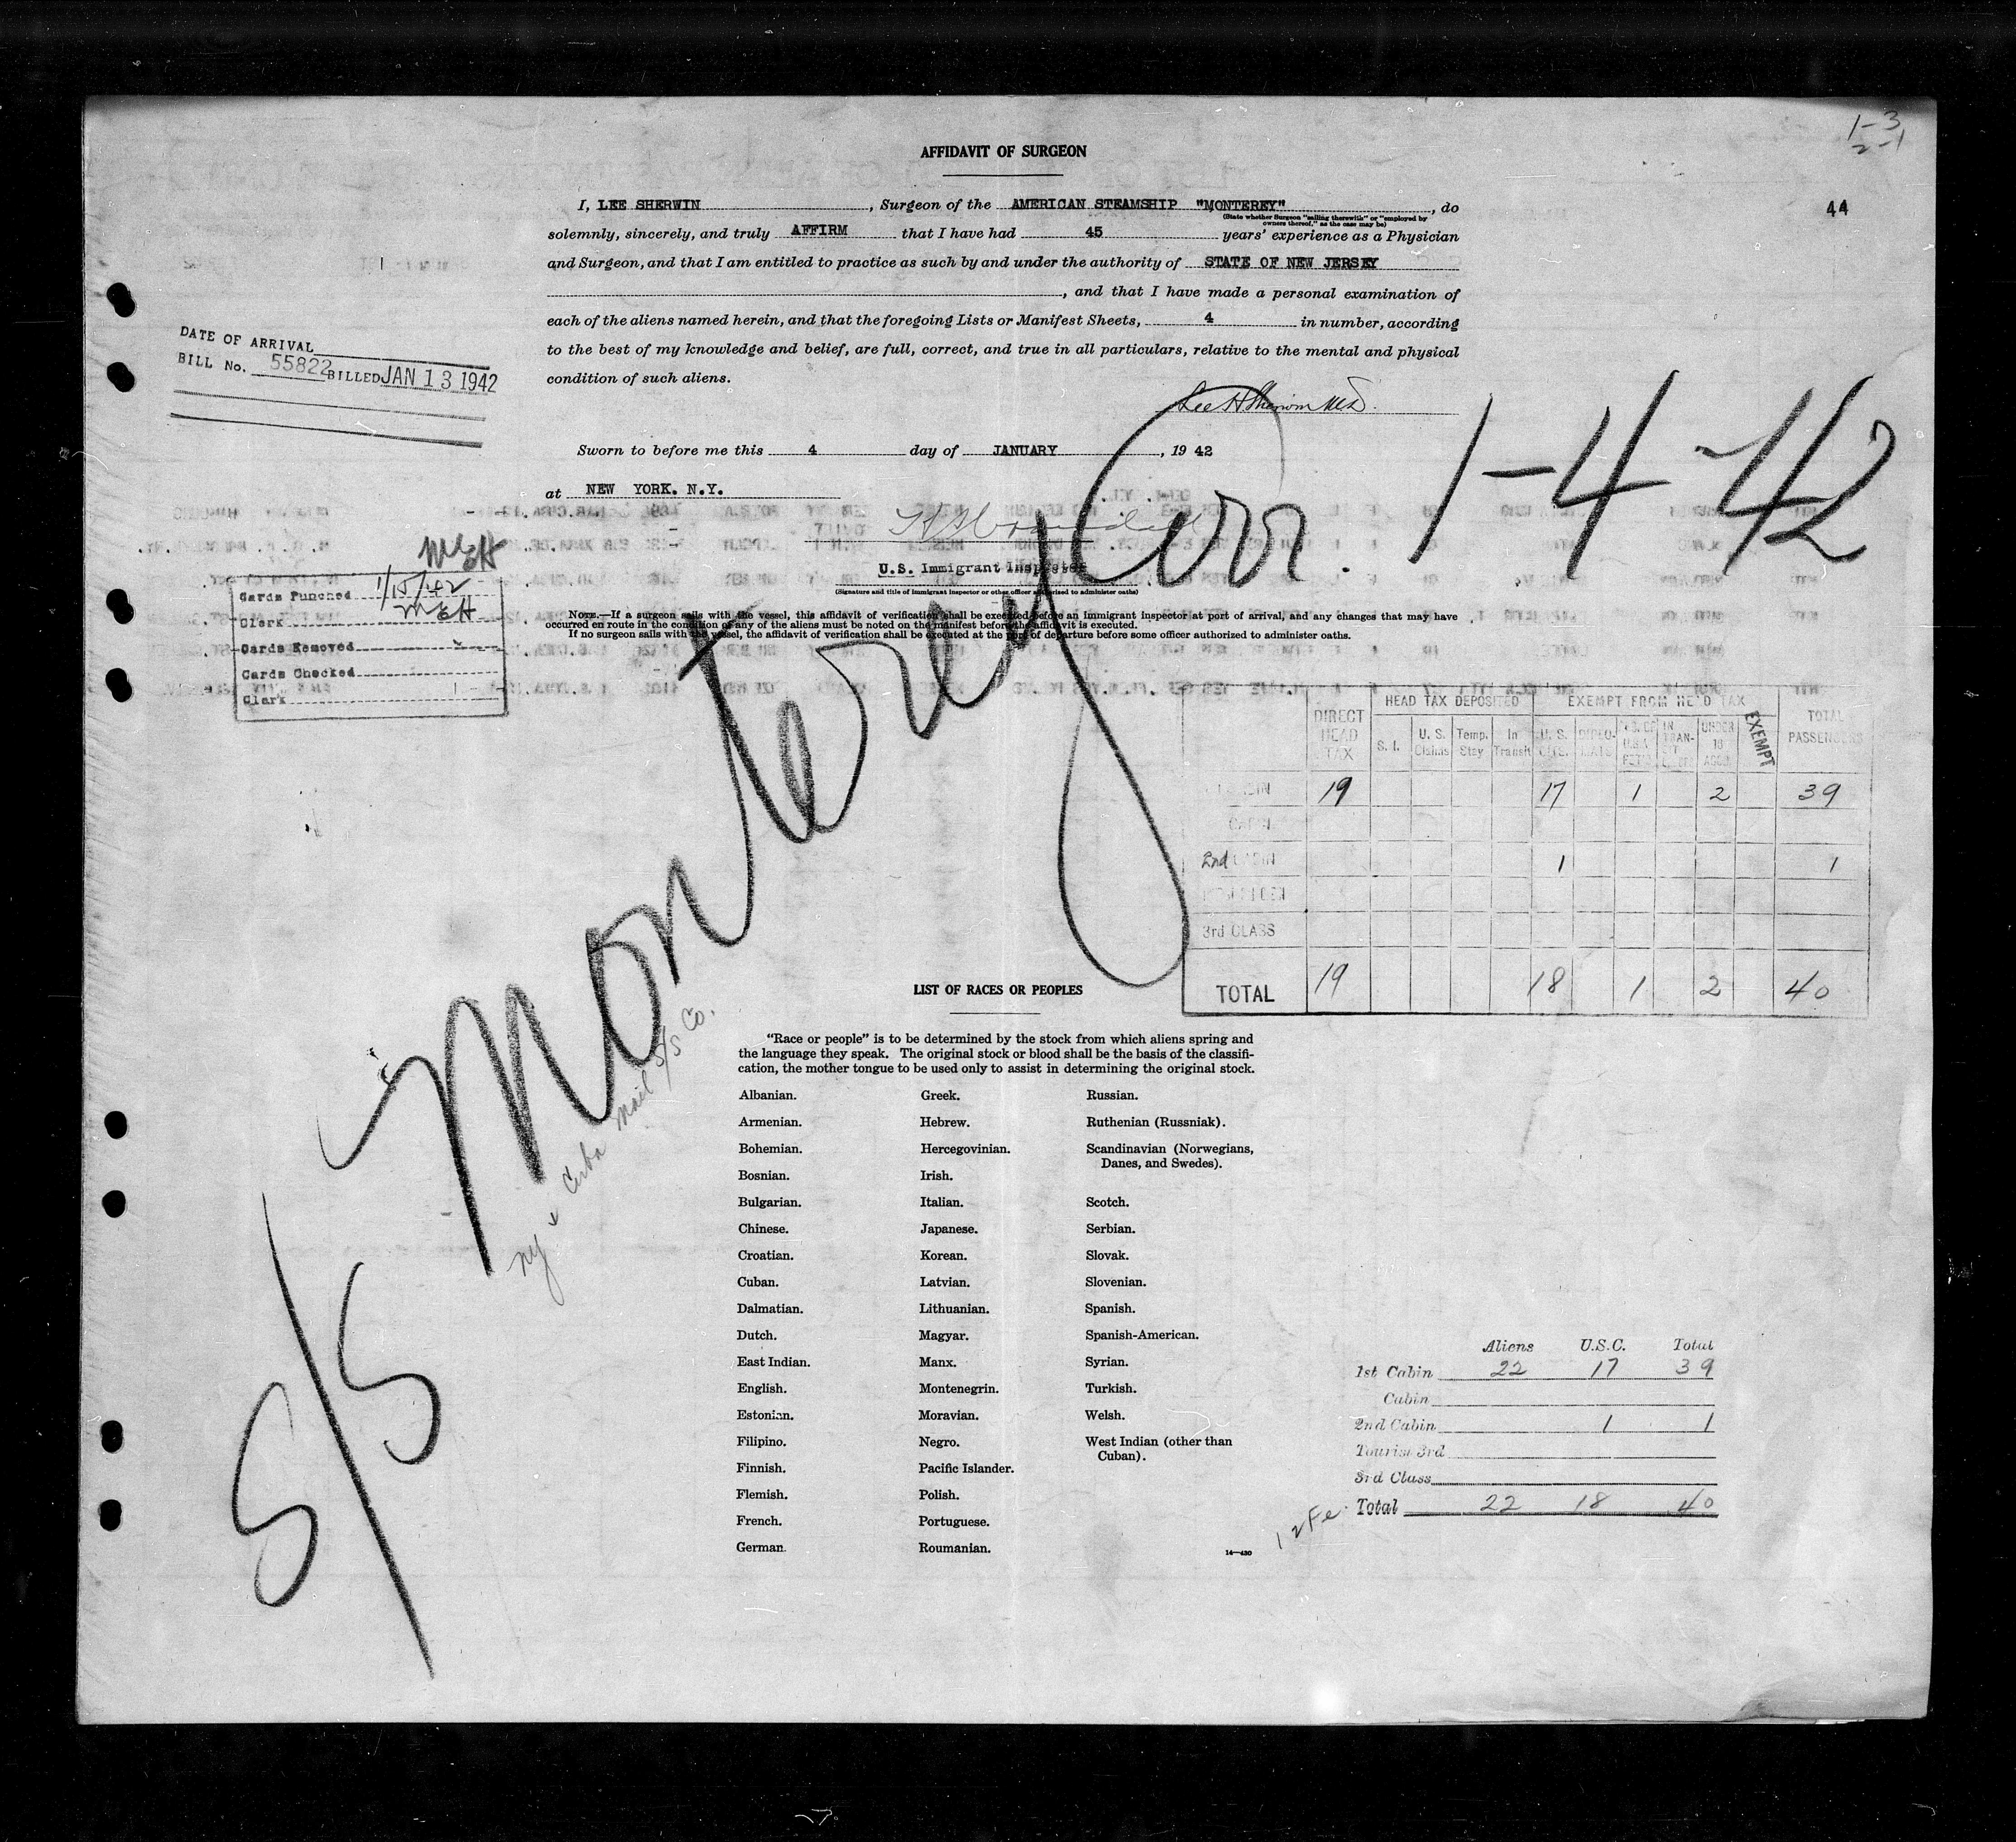 1-3
2-1
44
AFFIDAVIT OF SURGEON
I, LEE SHERWIN, Surgeon of the AMERICAN STEAMSHIP "MONTEREY", do
(State whether Surgeon "sailing therewith" or "employed by
owners thereof," as the case may be)
solemnly, sincerely, and truly AFFIRM that I have had 45 years' experience as a Physician
and Surgeon, and that I am entitled to practice as such by and under the authority of STATE OF NEW JERSEY
, and that I have made a personal examination of
each of the aliens named herein, and that the foregoing Lists or Manifest Sheets, 4 in number, according
to the best of my knowledge and belief, are full, correct, and true in all particulars, relative to the mental and physical
condition of such aliens.
Lee H Sherwin M.D.
DATE OF ARRIVAL
BILL No. 55822 BILLED JAN 13 1942
Sworn to before me this 4 day of JANUARY, 19 42
at NEW YORK. N.Y.
U.S. Immigrant Inspector
(Signature and title of immigrant inspector or other officer authorised to administer oaths)
NOTE.—If a surgeon sails with the vessel, this affidavit of verification shall be executed before an immigrant inspector at port of arrival, and any changes that may have
occurred en route in the condition of any of the aliens must be noted on the manifest before the affidavit is executed.
If no surgeon sails with the vessel, the affidavit of verification shall be executed at the port of departure before some officer authorized to administer oaths.
MEH
Cards Punched 1/15/42
Clerk MEH
Cards Removed
Cards Checked
Clerk
S/S Monterey
arr. 1-4-42
NY & Cuba Mail S/S Co.
DIRECT HEAD TAX
HEAD TAX DEPOSITED
EXEMPT FROM HEAD TAX
TOTAL PASSENGERS
S. I. U. S. Claims Temp. Stay In Transit U. S. CITS. DIPLOMATS IN TRANSIT UNDER 16 ACCO. EXEMPT
CABIN 19 17 1 2 39
CABIN
2nd CABIN 1 1
3rd CLASS
TOTAL 19 18 1 2 40
LIST OF RACES OR PEOPLES
"Race or people" is to be determined by the stock from which aliens spring and
the language they speak. The original stock or blood shall be the basis of the classifi-
cation, the mother tongue to be used only to assist in determining the original stock.
Albanian.
Armenian.
Bohemian.
Bosnian.
Bulgarian.
Chinese.
Croatian.
Cuban.
Dalmatian.
Dutch.
East Indian.
English.
Estonian.
Filipino.
Finnish.
Flemish.
French.
German.
Greek.
Hebrew.
Hercegovinian.
Irish.
Italian.
Japanese.
Korean.
Latvian.
Lithuanian.
Magyar.
Manx.
Montenegrin.
Moravian.
Negro.
Pacific Islander.
Polish.
Portuguese.
Roumanian.
Russian.
Ruthenian (Russniak).
Scandinavian (Norwegians,
Danes, and Swedes).
Scotch.
Serbian.
Slovak.
Slovenian.
Spanish.
Spanish-American.
Syrian.
Turkish.
Welsh.
West Indian (other than
Cuban).
14—430
Aliens U.S.C. Total
1st Cabin 22 17 39
Cabin
2nd Cabin 1 1
Tourist 3rd
3rd Class
Total 22 18 40